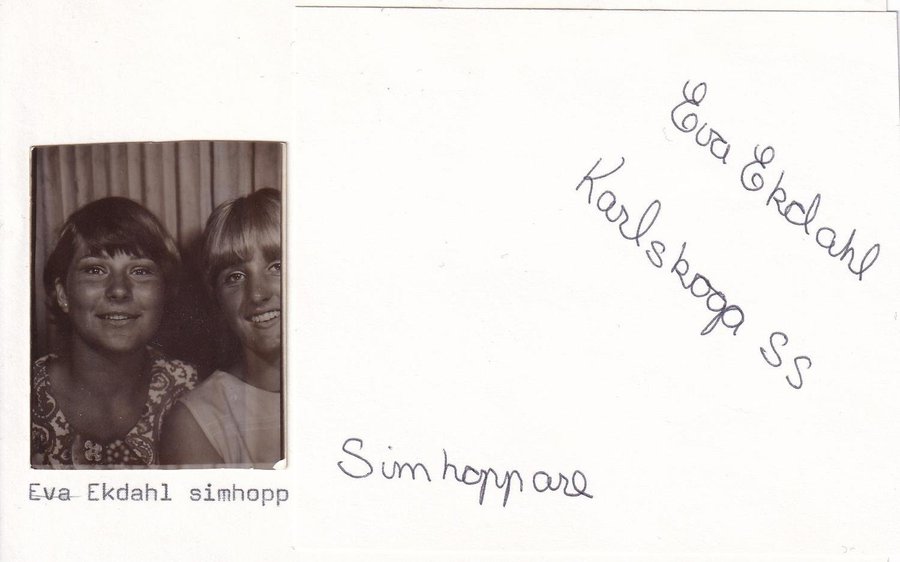 Eva Ekdahl
Karlskoga SS
Simhoppare
Eva Ekdahl simhopp